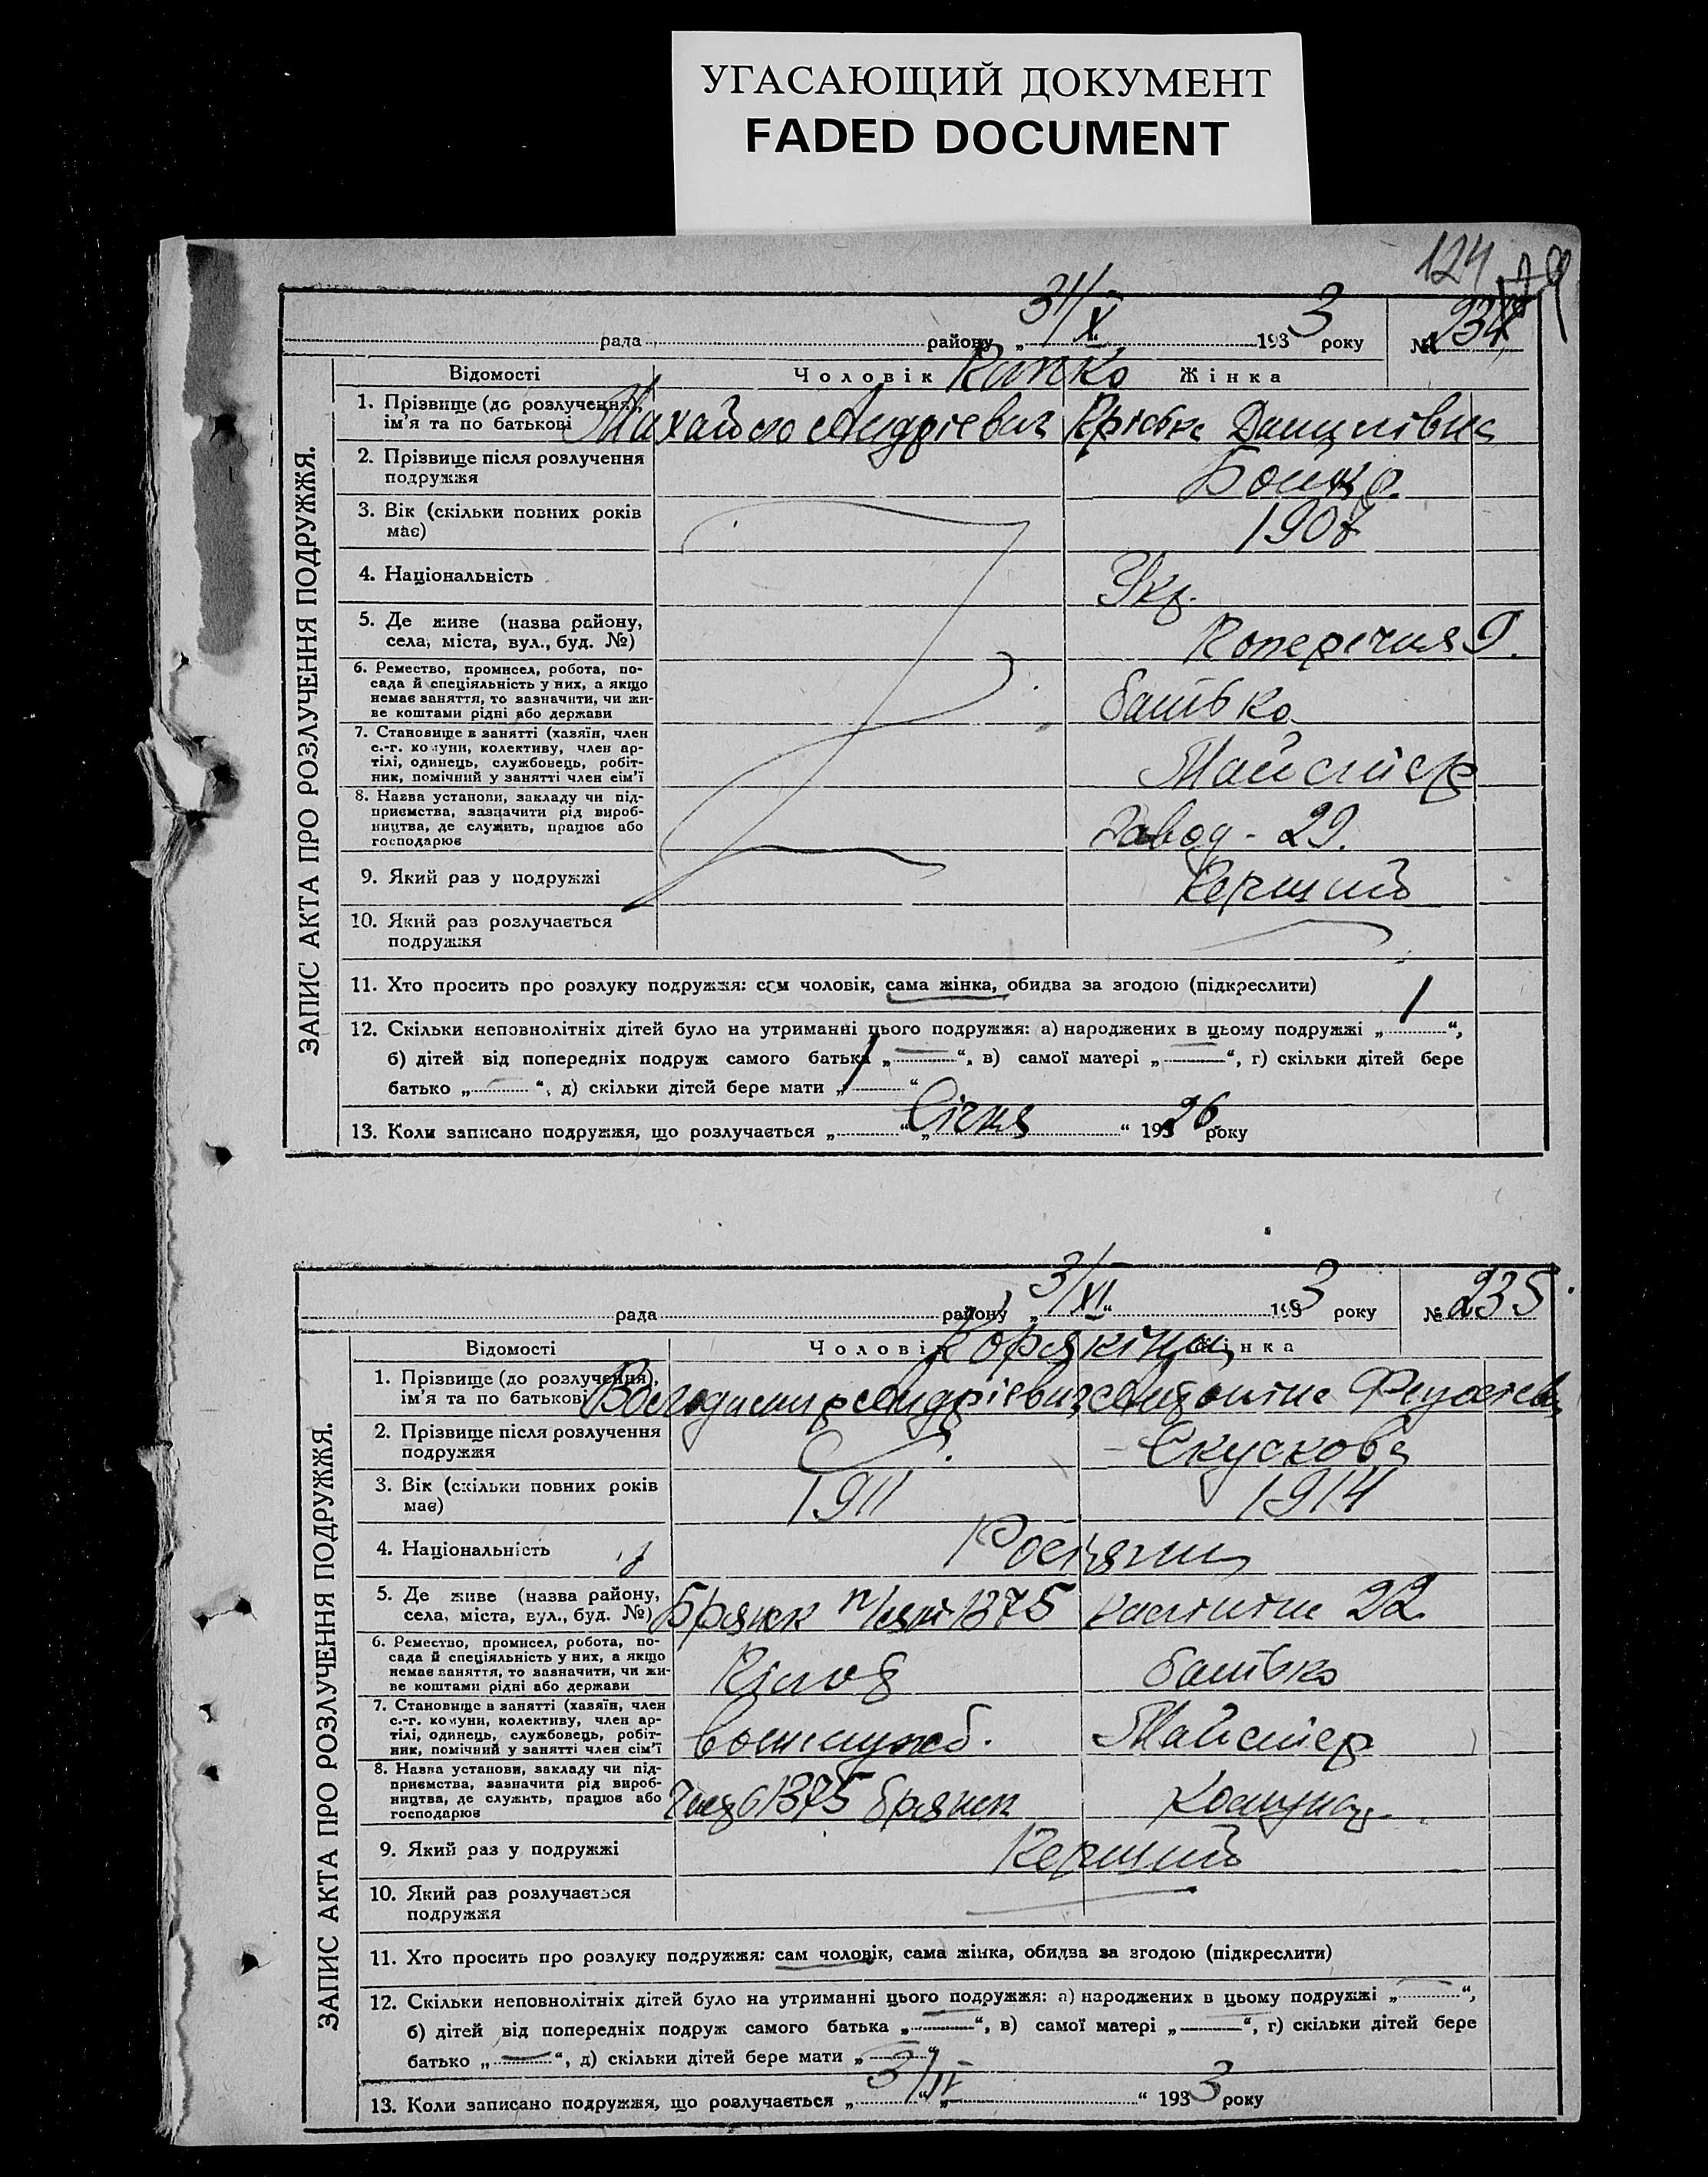 УГАСАЮЩИЙ ДОКУМЕНТ
FADED DOCUMENT
124
ЗАПИС АКТА ПРО РОЗЛУЧЕННЯ ПОДРУЖЖЯ.
рада району „31/X“ 1933 року № 234
Відомості Чоловік Жінка
1. Прізвище (до розлучення),
ім'я та по батькові
Андріевич
2. Прізвище після розлучення
подружжя
3. Вік (скільки повних років
має)
1907
4. Національність
Укр.
5. Де живе (назва району,
села, міста, вул., буд. №)
9.
6. Ремество, промисел, робота, по-
сада й спеціяльність у них, а якщо
немає заняття, то зазначити, чи жи-
ве коштами рідні або держави
батько
7. Становище в занятті (хазяїн, член
с.-г. комуни, колективу, член ар-
тілі, одинець, службовець, робіт-
ник, помічний у занятті член сім'ї
Майстер
8. Назва установи, закладу чи під-
приємства, зазначити рід вироб-
ництва, де служить, працює або
господарює
Завод - 29.
9. Який раз у подружжі
Перший
10. Який раз розлучається
подружжя
11. Хто просить про розлуку подружжя: сам чоловік, сама жінка, обидва за згодою (підкреслити)
12. Скільки неповнолітніх дітей було на утриманні цього подружжя: а) народжених в цьому подружжі „1“,
б) дітей від попередніх подруж самого батька „—“, в) самої матері „—“, г) скільки дітей бере
батько „—“, д) скільки дітей бере мати „1“
13. Коли записано подружжя, що розлучається „ “ „Січня“ 1926 року
ЗАПИС АКТА ПРО РОЗЛУЧЕННЯ ПОДРУЖЖЯ.
рада району „3/XI“ 1933 року № 235
Відомості Чоловік Жінка
Корякіни
1. Прізвище (до розлучення),
ім'я та по батькові
Володимир Андріевич Антоніна
2. Прізвище після розлучення
подружжя
Скускова
3. Вік (скільки повних років
має)
1911 1914
4. Національність
Росіяни
5. Де живе (назва району,
села, міста, вул., буд. №)
Брянск п/ящ 1375 Калініна 22.
6. Ремество, промисел, робота, по-
сада й спеціяльність у них, а якщо
немає заняття, то зазначити, чи жи-
ве коштами рідні або держави
батько
7. Становище в занятті (хазяїн, член
с.-г. комуни, колективу, член ар-
тілі, одинець, службовець, робіт-
ник, помічний у занятті член сім'ї
Майстер
8. Назва установи, закладу чи під-
приємства, зазначити рід вироб-
ництва, де служить, працює або
господарює
1375 Брянск Комунар
9. Який раз у подружжі
Перший
10. Який раз розлучається
подружжя
11. Хто просить про розлуку подружжя: сам чоловік, сама жінка, обидва за згодою (підкреслити)
12. Скільки неповнолітніх дітей було на утриманні цього подружжя: а) народжених в цьому подружжі „—“,
б) дітей від попередніх подруж самого батька „—“, в) самої матері „—“, г) скільки дітей бере
батько „—“, д) скільки дітей бере мати „—“
13. Коли записано подружжя, що розлучається „3/II“ „ “ 1933 року